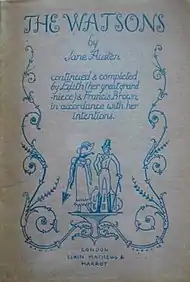 THE WATSONS
by
Jane Austen
continued & completed
by Edith (her great grand
niece) & Francis Brown,
in accordance with her
intentions.
LONDON
ELKIN MATHEWS &
MARROT